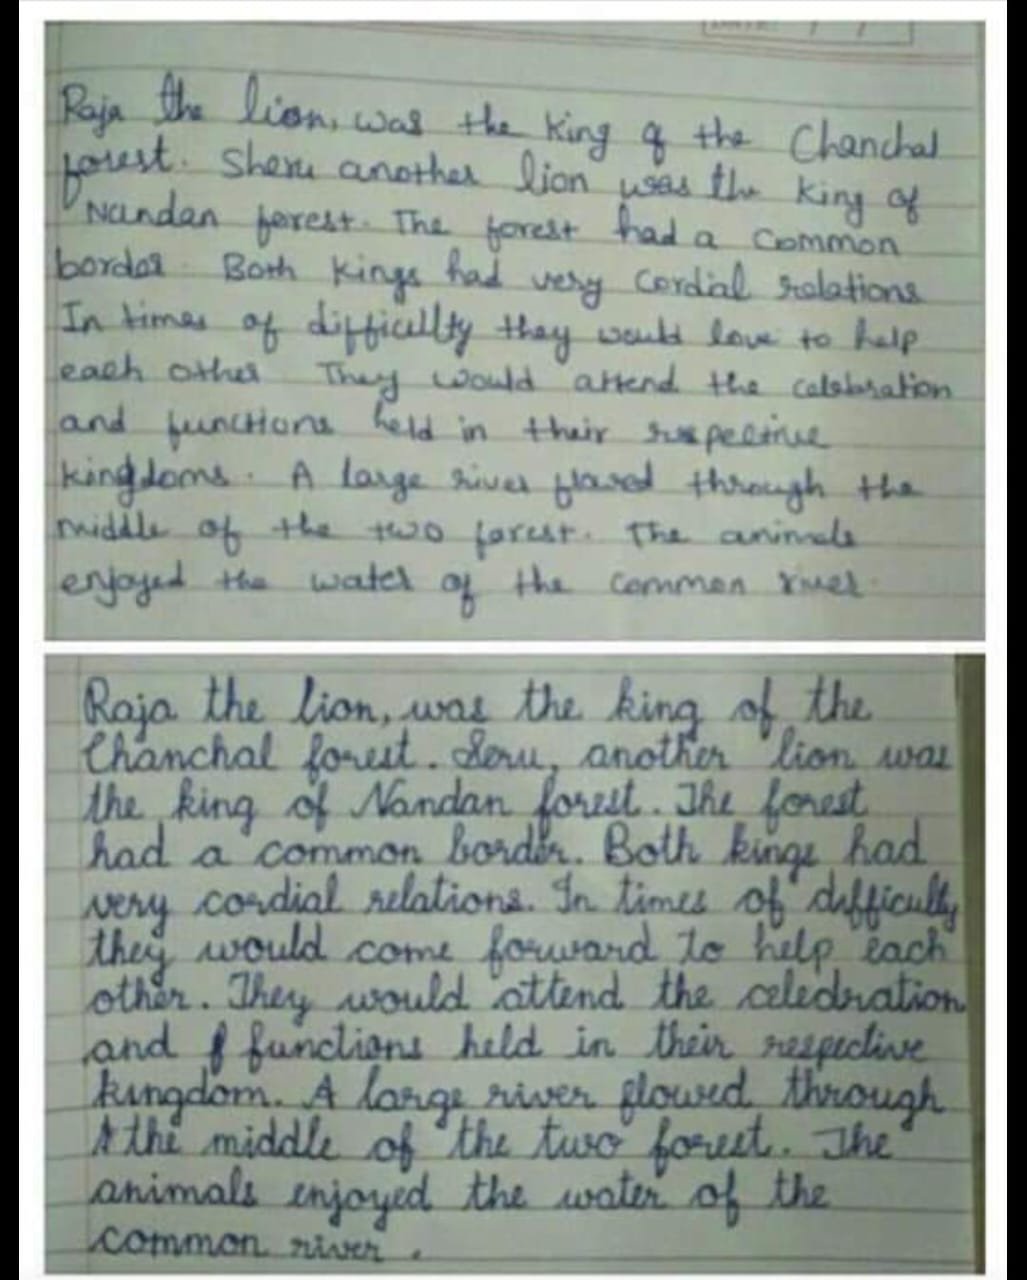 Raja the lion, was the King of the Chanchal
forest. Sheru another lion was the King of
Nandan forest. The forest had a Common
border. Both Kings had very Cordial relations
In times of difficullty they would love to help
each other They would attend the celebration
and functions held in their respective
kingdoms. A large river flowed through the
middle of the two forest. The animals
enjoyed the water of the Common river.
Raja the lion, was the king of the
Chanchal forest. Seru, another lion was
the king of Nandan forest. The forest
had a common border. Both kings had
very cordial relations. In times of difficully
they would come forward to help each
other. They would attend the celedration
and f functions held in their respective
kingdom. A large river flowed through
the middle of the two forest. The
animals enjoyed the water of the
common river.